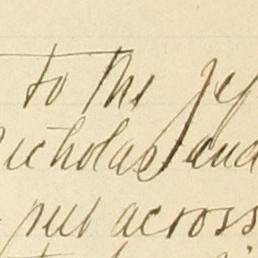 to the
Nicholas and
put across